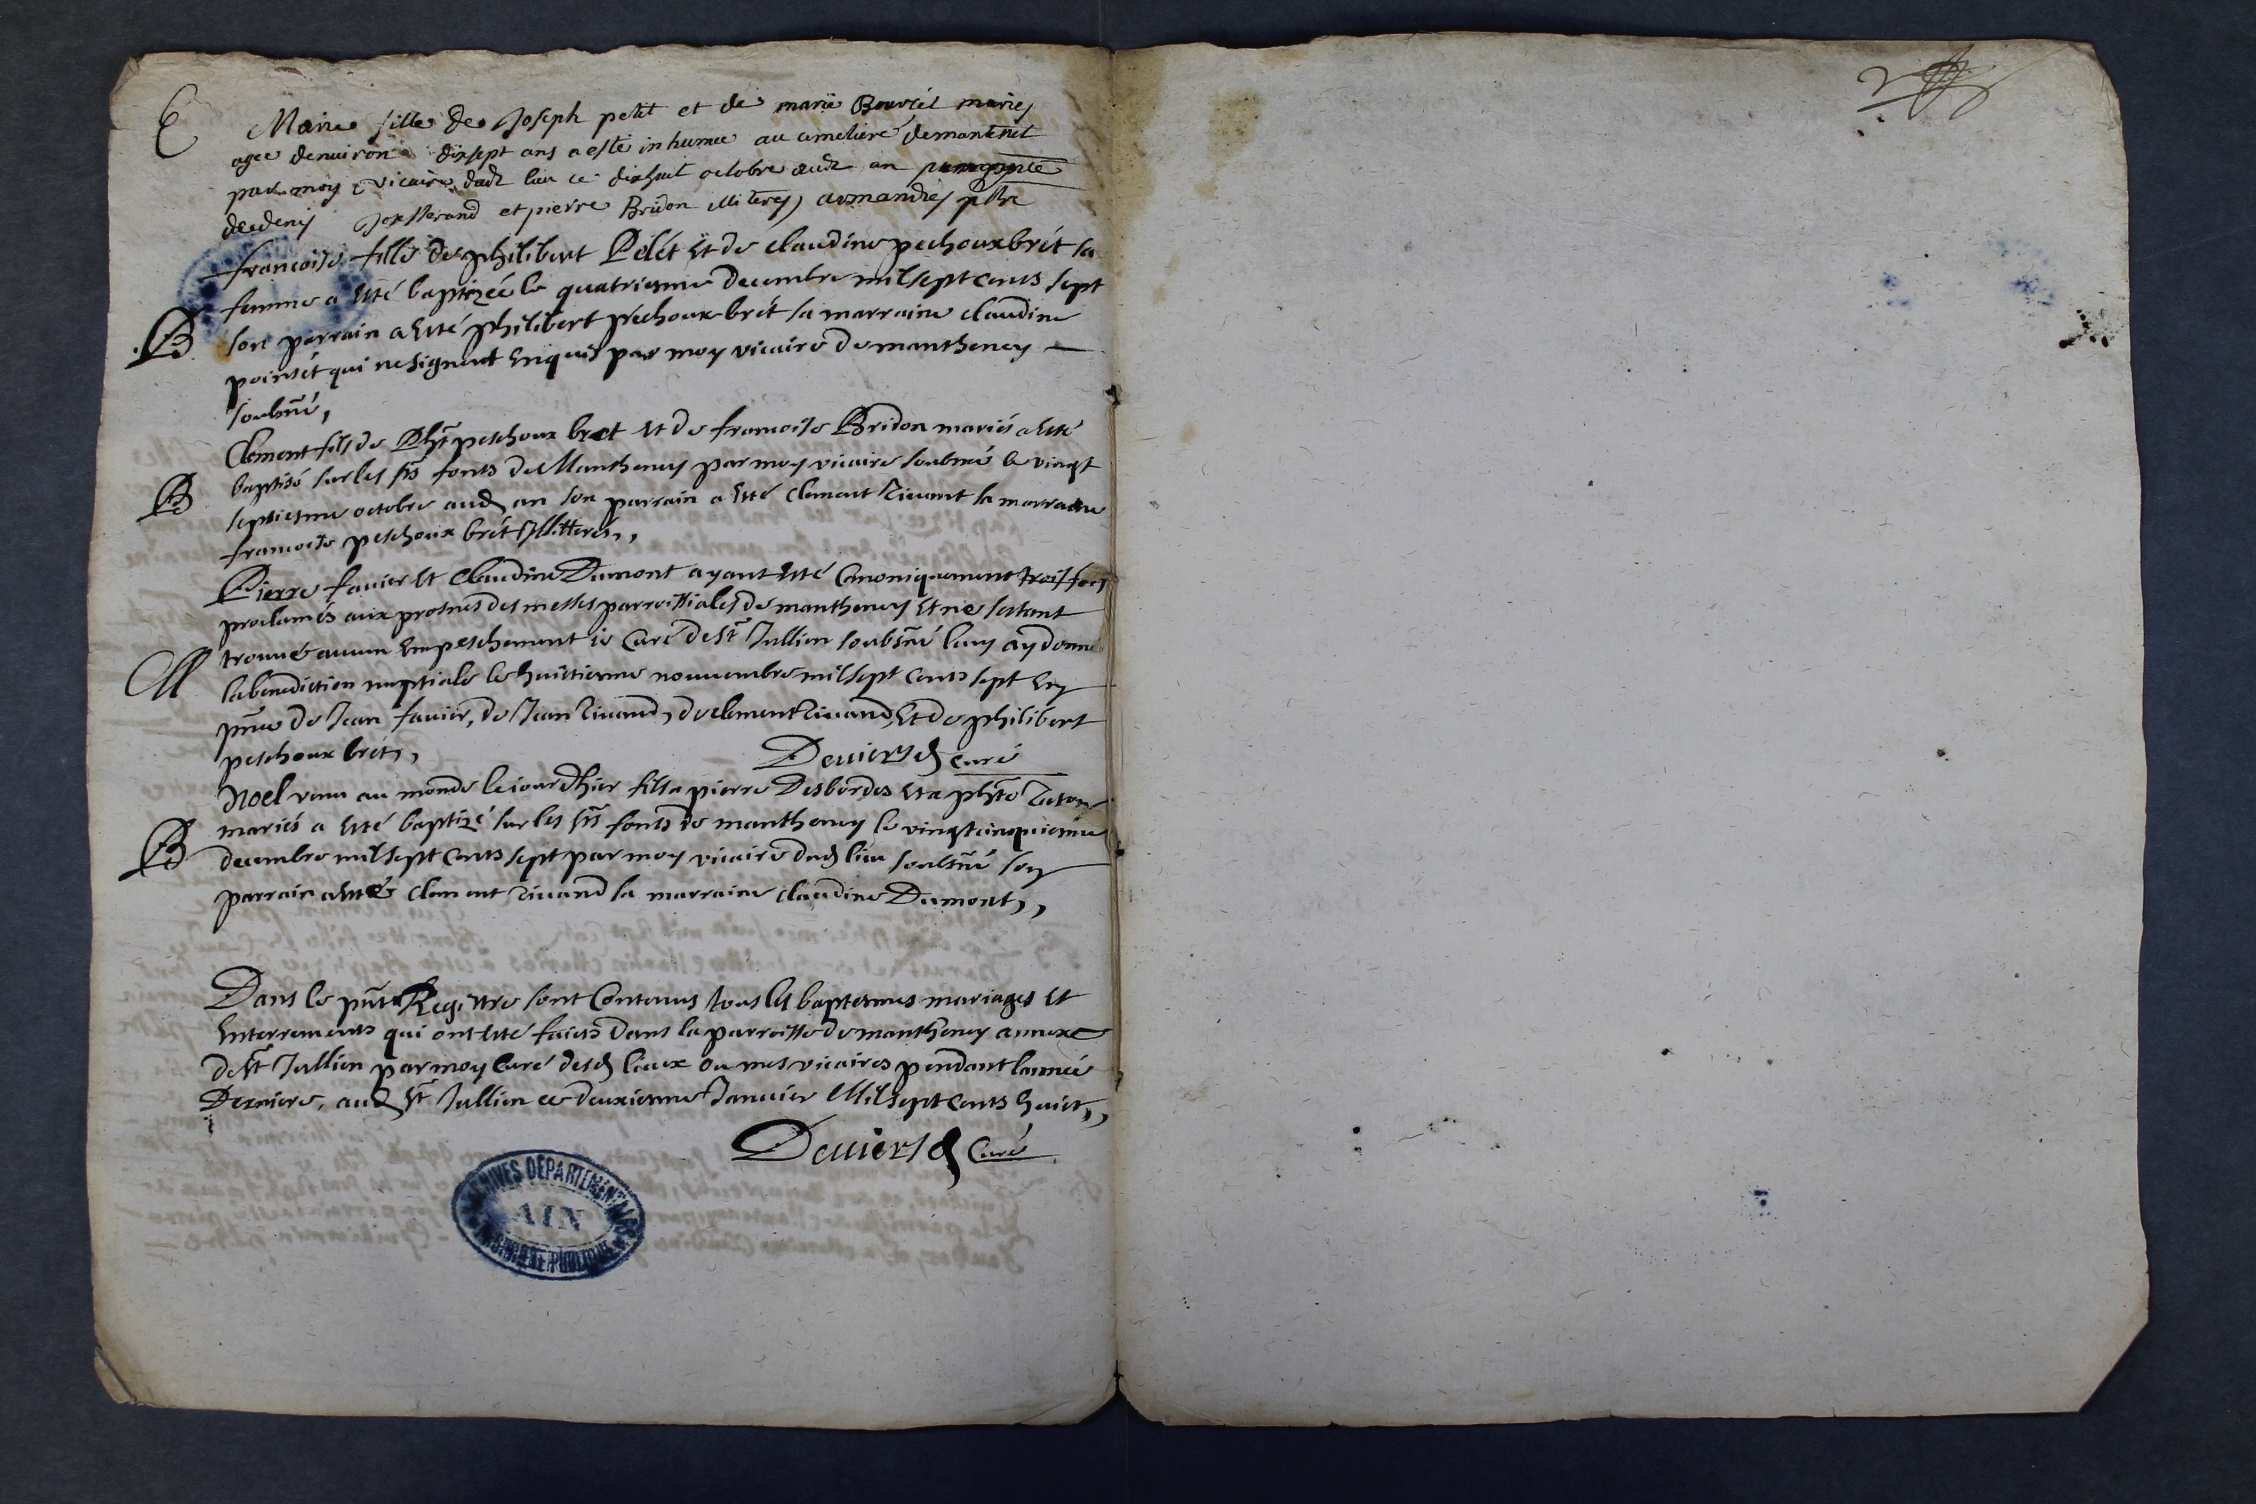 E
Marie fille de Joseph petit et de marie mariés
agee denuiron dixsept ans a esté inhumee au
par moy vicaire dudt lieu ce dixhuit octobre audt an
de denis Josserand et pierre Bridon illiteres, pbre
francoise fille de philibert Pelét Et de claudine pechoux brét sa
femme a Esté baptizée le quatriesme decembre mil sept cents sept
B
son parrain a Esté philibert péchoux brét sa marraine claudine
pointét qui ne signent Enquis par moy vicaire de mantheney
soubsné,
Clement fils de Phrt peschoux bret Et de francoise Bridon mariés a Esté
baptisé sur les sts fonts de Mantheney par moy vicaire soubsné le vingt
B
septiesme octobre aud an son parrain a Esté clement Tiuant sa marraine
francoise peschoux brét Illitterés,,
Pierre fauier Et Claudine Dumont ayant Esté Canoniquement trois fois
proclamés aux prosnes des messes parroissiales de mantheney Et ne sestant
trouué aucun Empeschement ie Curé de St Jullien soubsné leur ay donné
M
la benediction nuptiale le huictiesme nouuembre mil sept cents sept En
pnce de Jean fauier, de Jean Tiuand, de clement Tiuand, Et de philibert
peschoux brét,,
Deuiers d Curé
Noel venu au monde le iour dhier fils a pierre Desbordes Et a phte
mariés a Esté baptizé sur les sts fonts de mantheney le vingtcinquiesme
B
decembre mil sept cents sept par moy vicaire dud lieu soubsné son
parrain a Esté Clement Tiuand sa marraine claudine Dumont,,
Dans le pnt Registre sont Contenus tous les baptesmes mariages Et
Enterrements qui ont Esté faicts Dans la parroisse de mantheney annexe
de St Jullien par moy Curé desd lieux ou mes vicaires pendant lannée
Derniere, aud St Jullien ce deuxiesme Januier Mil sept cents huict,,
Deuiers d Curé
ARCHIVES DÉPARTEMENTALES
AIN
2